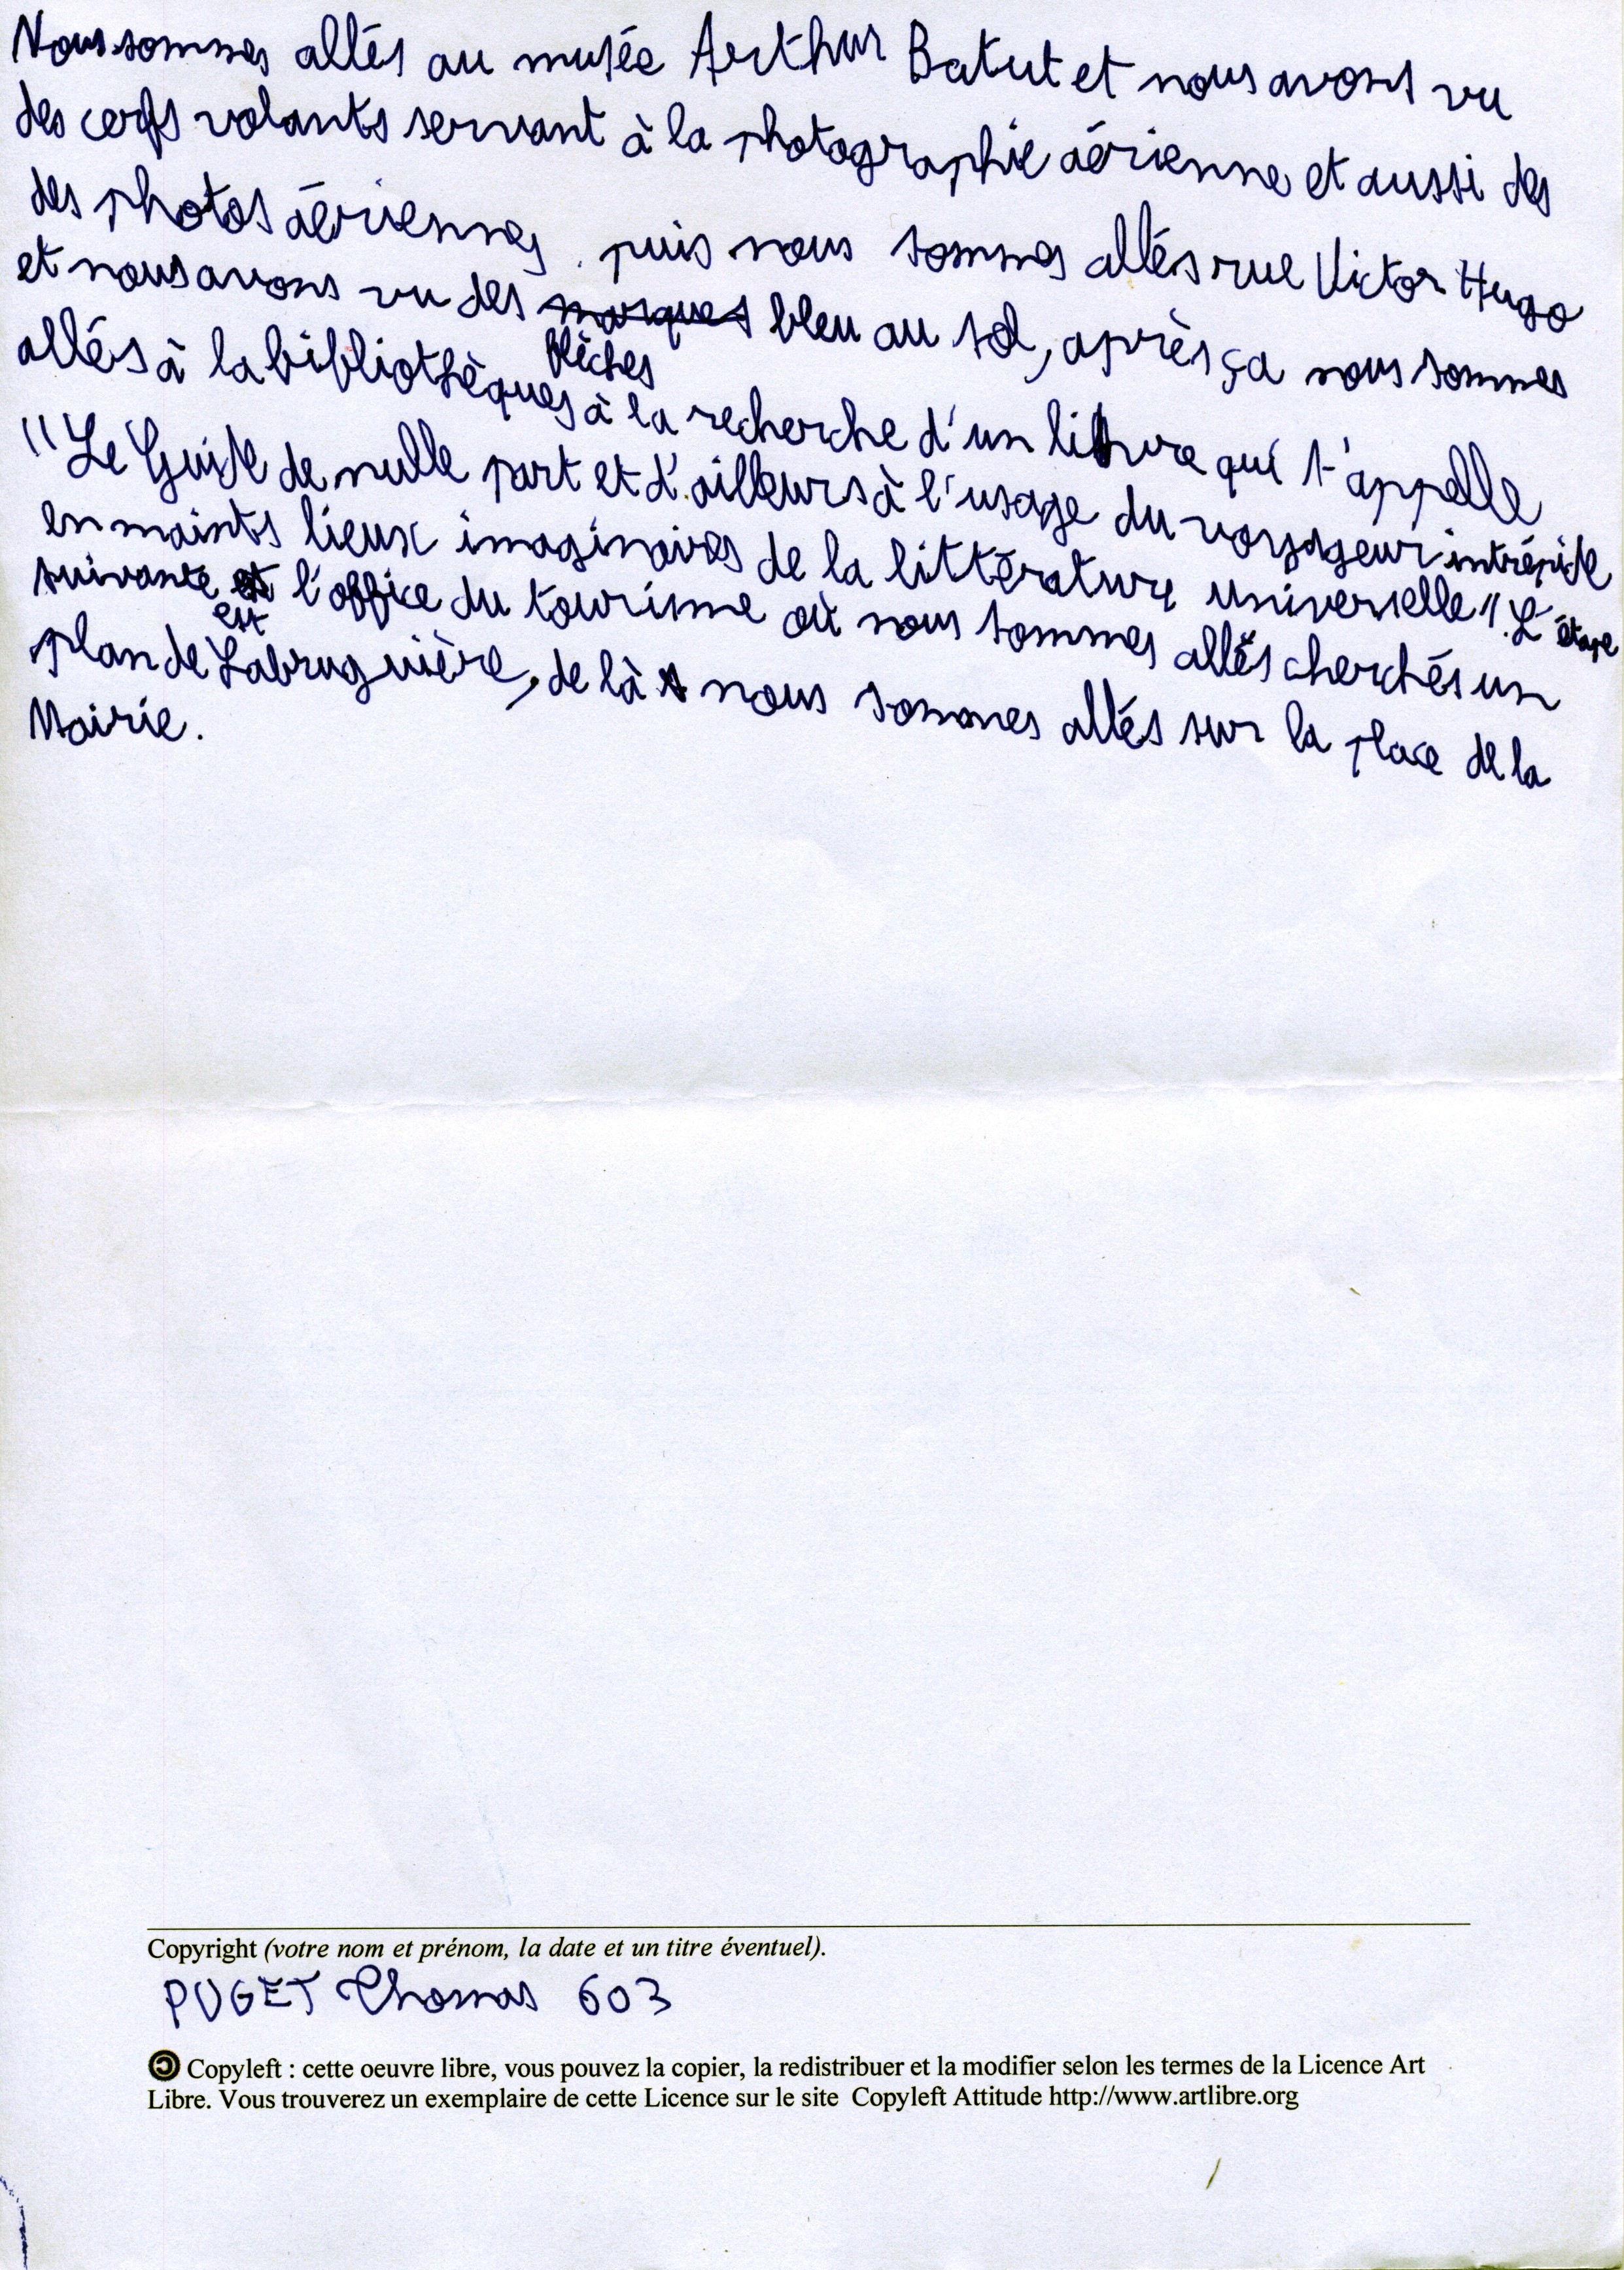 Nous sommes allés au musée Arthur Batut et nous avons vu
des cerfs volants servant à la photographie aérienne et aussi des
des photos aériennes. puis nous sommes allés rue Victor Hugo
et nous avons vu des marques bleu au sol, après ça nous sommes
flèches
allés à la bibliothèques à la recherche d'un livre qui s'appelle
"Le Guide de nulle part et d'ailleurs à l'usage du voyageur intrépide
en maints lieux imaginaires de la littérature universelle". L'étape
suivante et l'office du tourisme où nous sommes allés cherchés un
est
plan de Labruguière, de là nous sommes allés sur la place de la
Mairie.
Copyright (votre nom et prénom, la date et un titre éventuel).
PUGET Thomas 603
Copyleft : cette oeuvre libre, vous pouvez la copier, la redistribuer et la modifier selon les termes de la Licence Art
Libre. Vous trouverez un exemplaire de cette Licence sur le site Copyleft Attitude http://www.artlibre.org